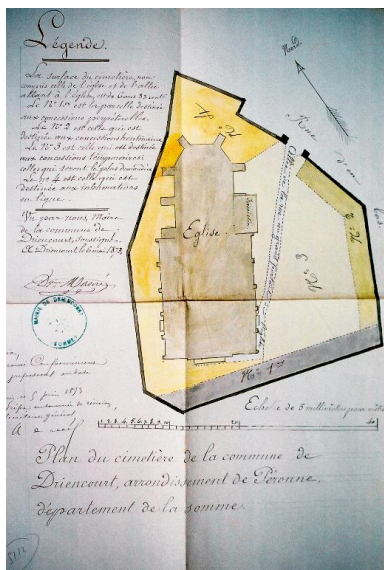 Légende.
La surface du cimetière, non
compris celle de l'église et de l'allée
allant à l'église, est de 6 ares 33 cent.
Le N° 1er est la parcelle destinée
aux concessions perpétuelles.
Le N° 2 est celle qui est
destinée aux concessions trentenaires
Le N° 3 est celle qui est destinée
aux concessions temporaires;
celles qui seront le plus
Le N° 4 est celle qui est
destinée aux inhumations
en ligne.
Vu par nous, Maire
de la commune de
Driencourt, soussigné.
A Driencourt le 1873.
MAIRIE DE DRIENCOURT
(SOMME)
5 juin 1873
Nord
Rue d'en bas
N° 4
Eglise
Sacristie
N° 3
N° 2
N° 1er
Echelle de 5 millimètres pour mètre
1 2 3 4 5 6 7 8 9 10 20 40
Plan du cimetière de la commune de
Driencourt, arrondissement de Péronne,
département de la somme.